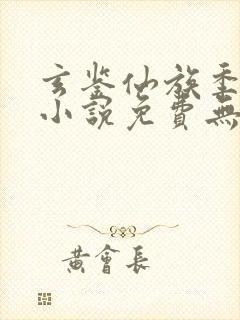 玄鉴仙族季
小說免費無
黃會長